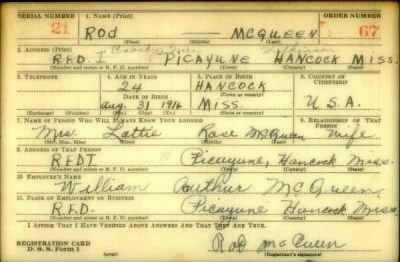 SERIAL NUMBER 1. NAME (Print) ORDER NUMBER
21 ROD McQUEEN 67
(First) (Middle) (Last)
2. ADDRESS (Print)
R.F.D. I PICAYUNE HANCOCK MISS.
(Number and street or R. F. D. number) (Town) (County) (State)
3. TELEPHONE 4. AGE IN YEARS 5. PLACE OF BIRTH 6. COUNTRY OF CITIZENSHIP
24 HANCOCK
DATE OF BIRTH (Town or county)
Aug. 31 1916 MISS. U.S.A.
(Exchange) (Number) (Mo.) (Day) (Yr.) (State or country)
7. NAME OF PERSON WHO WILL ALWAYS KNOW YOUR ADDRESS 8. RELATIONSHIP OF THAT PERSON
Mrs. Lottie Rose McQueen Wife
(Mr., Mrs., Miss) (First) (Middle) (Last)
9. ADDRESS OF THAT PERSON
RFD I Picayune, Hancock Miss.
(Number and street or R. F. D. number) (Town) (County) (State)
10. EMPLOYER'S NAME
William Authur McQueen
11. PLACE OF EMPLOYMENT OR BUSINESS
R.F.D. Picayune Hancock Miss.
(Number and street or R. F. D. number) (Town) (County) (State)
I AFFIRM THAT I HAVE VERIFIED ABOVE ANSWERS AND THAT THEY ARE TRUE.
REGISTRATION CARD
D. S. S. Form 1 Rod McQueen
(Registrant's signature)